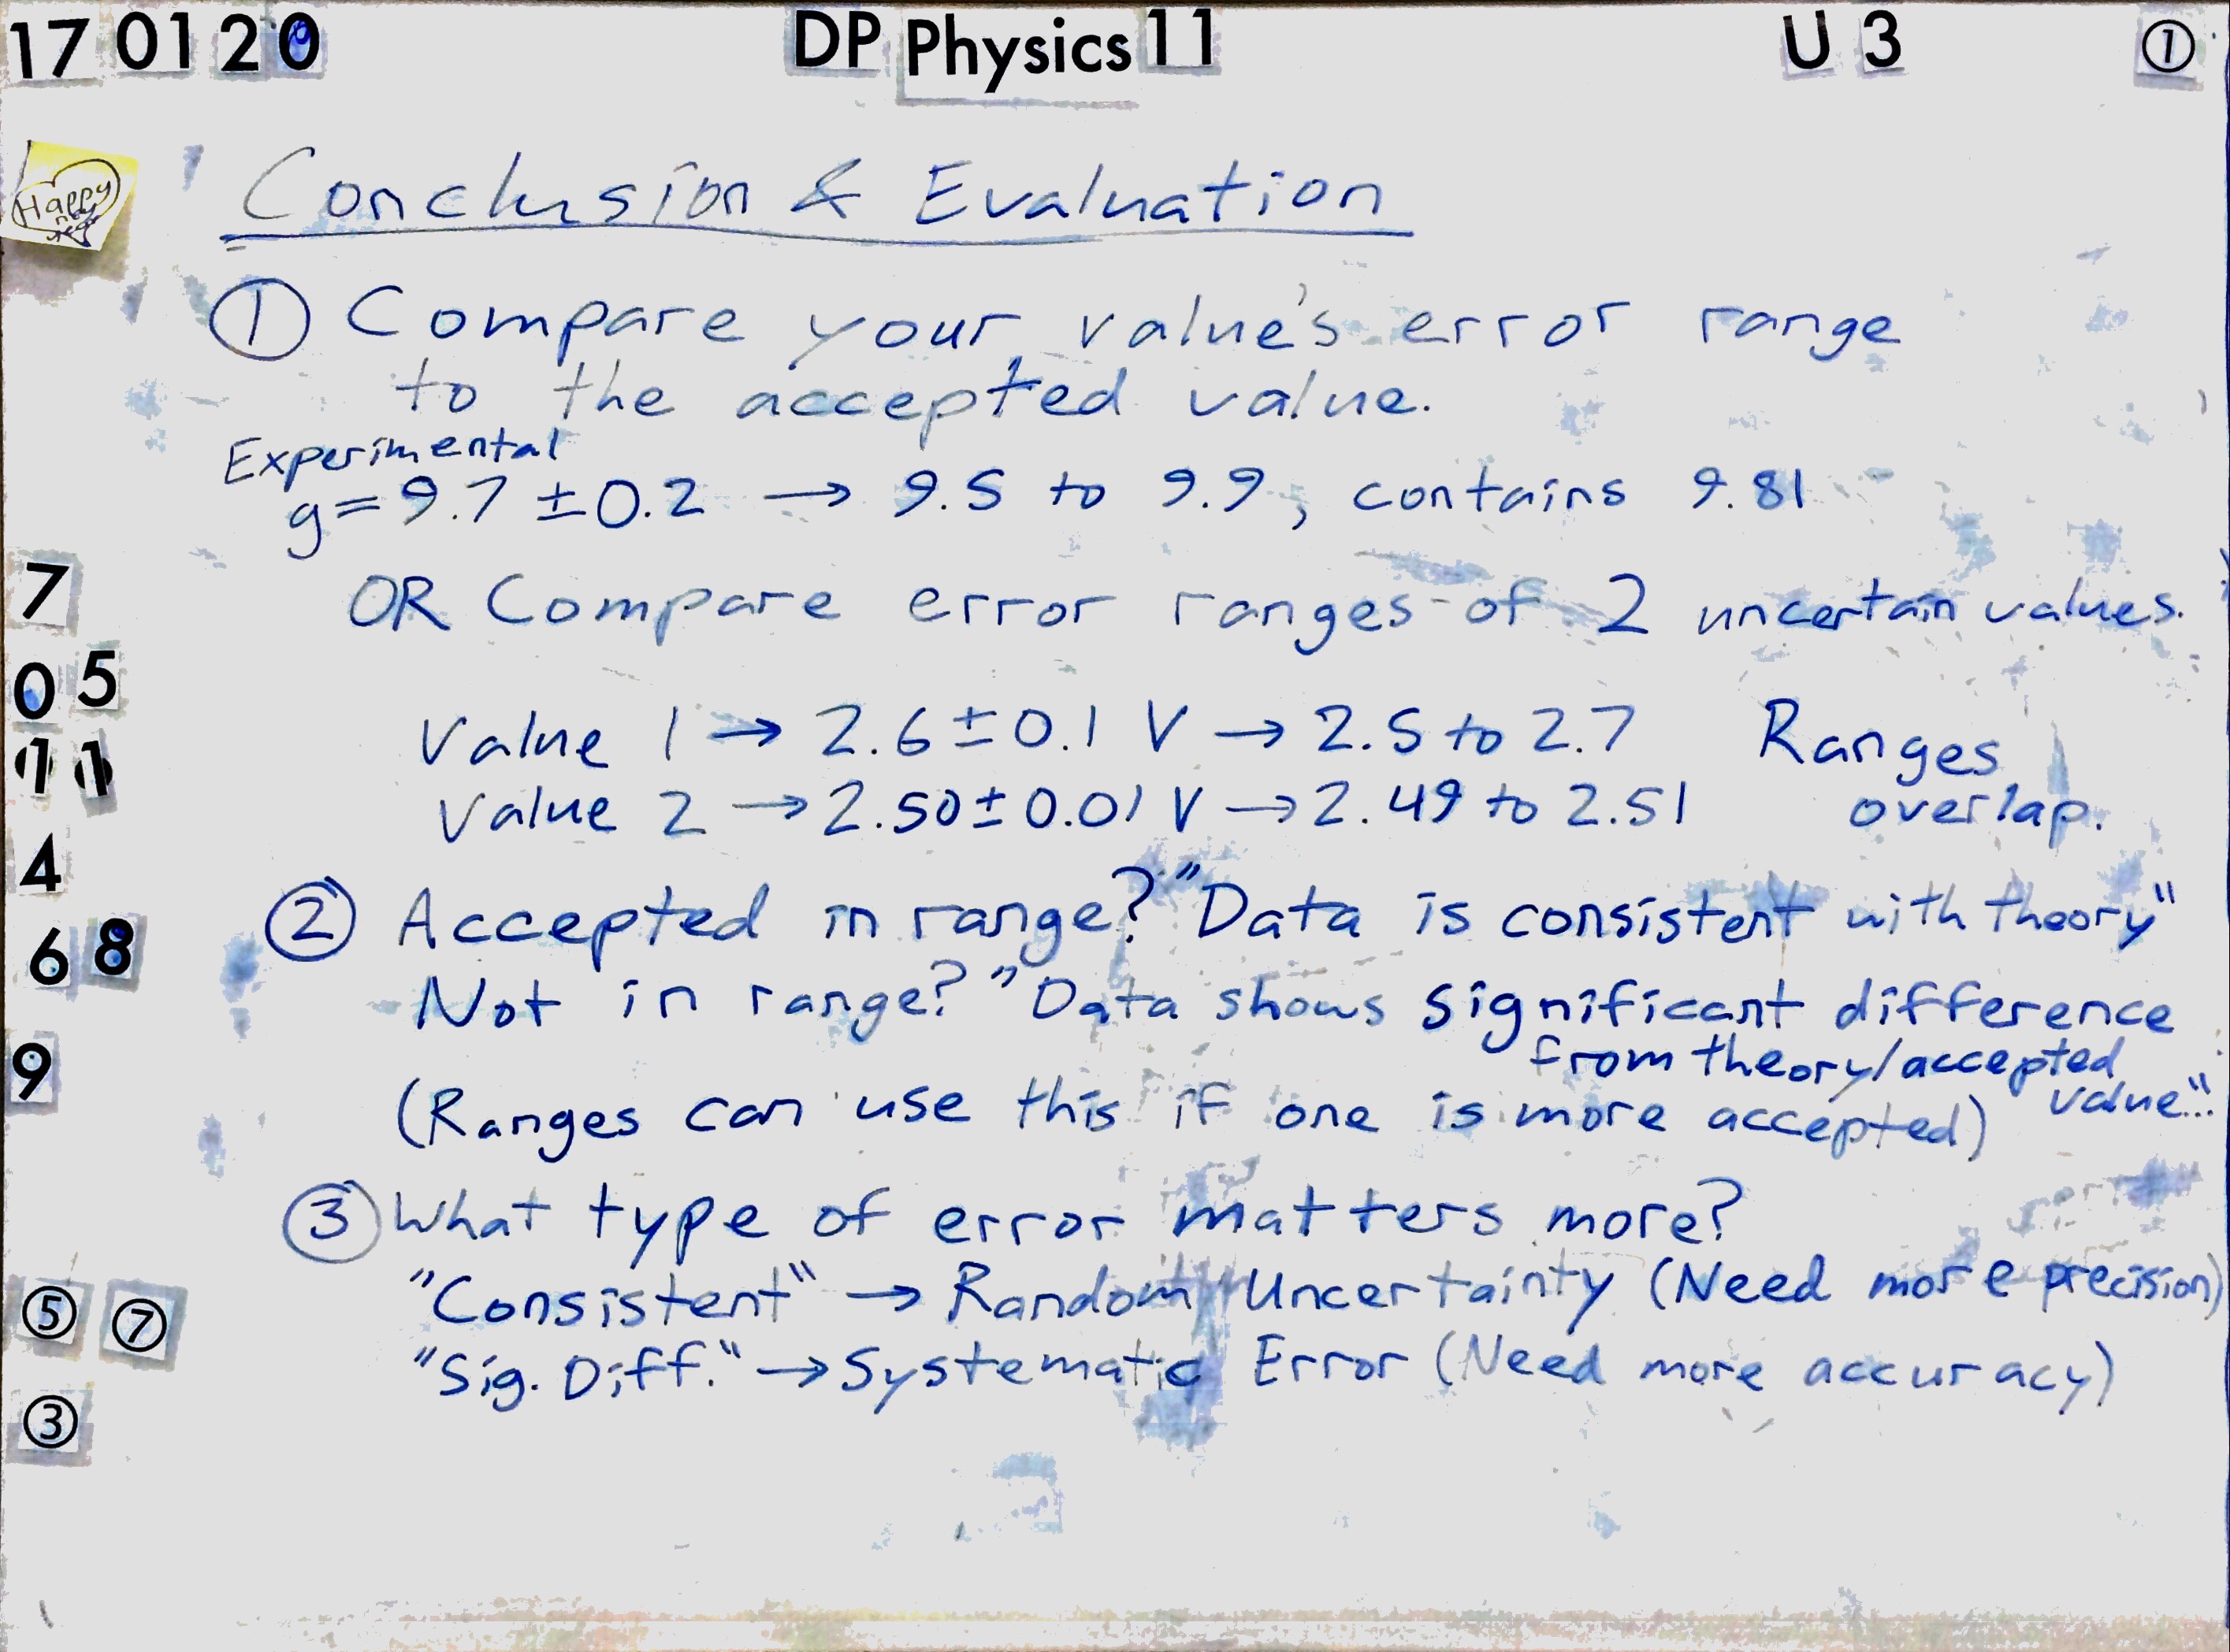 17 01 20 DP Physics 11 U 3 ①
Happy
Conclusion & Evaluation
① Compare your value's error range
to the accepted value.
Experimental
g = 9.7 ± 0.2 → 9.5 to 9.9, contains 9.81
OR Compare error ranges of 2 uncertain values.
Value 1 → 2.6 ± 0.1 V → 2.5 to 2.7 Ranges
Value 2 → 2.50 ± 0.01 V → 2.49 to 2.51 overlap.
② Accepted in range? "Data is consistent with theory"
Not in range? "Data shows significant difference
from theory/accepted
value."
(Ranges can use this if one is more accepted)
③ What type of error matters more?
"Consistent" → Random Uncertainty (Need more precision)
"Sig. Diff." → Systematic Error (Need more accuracy)
7
0 5
1 1
4
6 8
9
⑤ ⑦
③